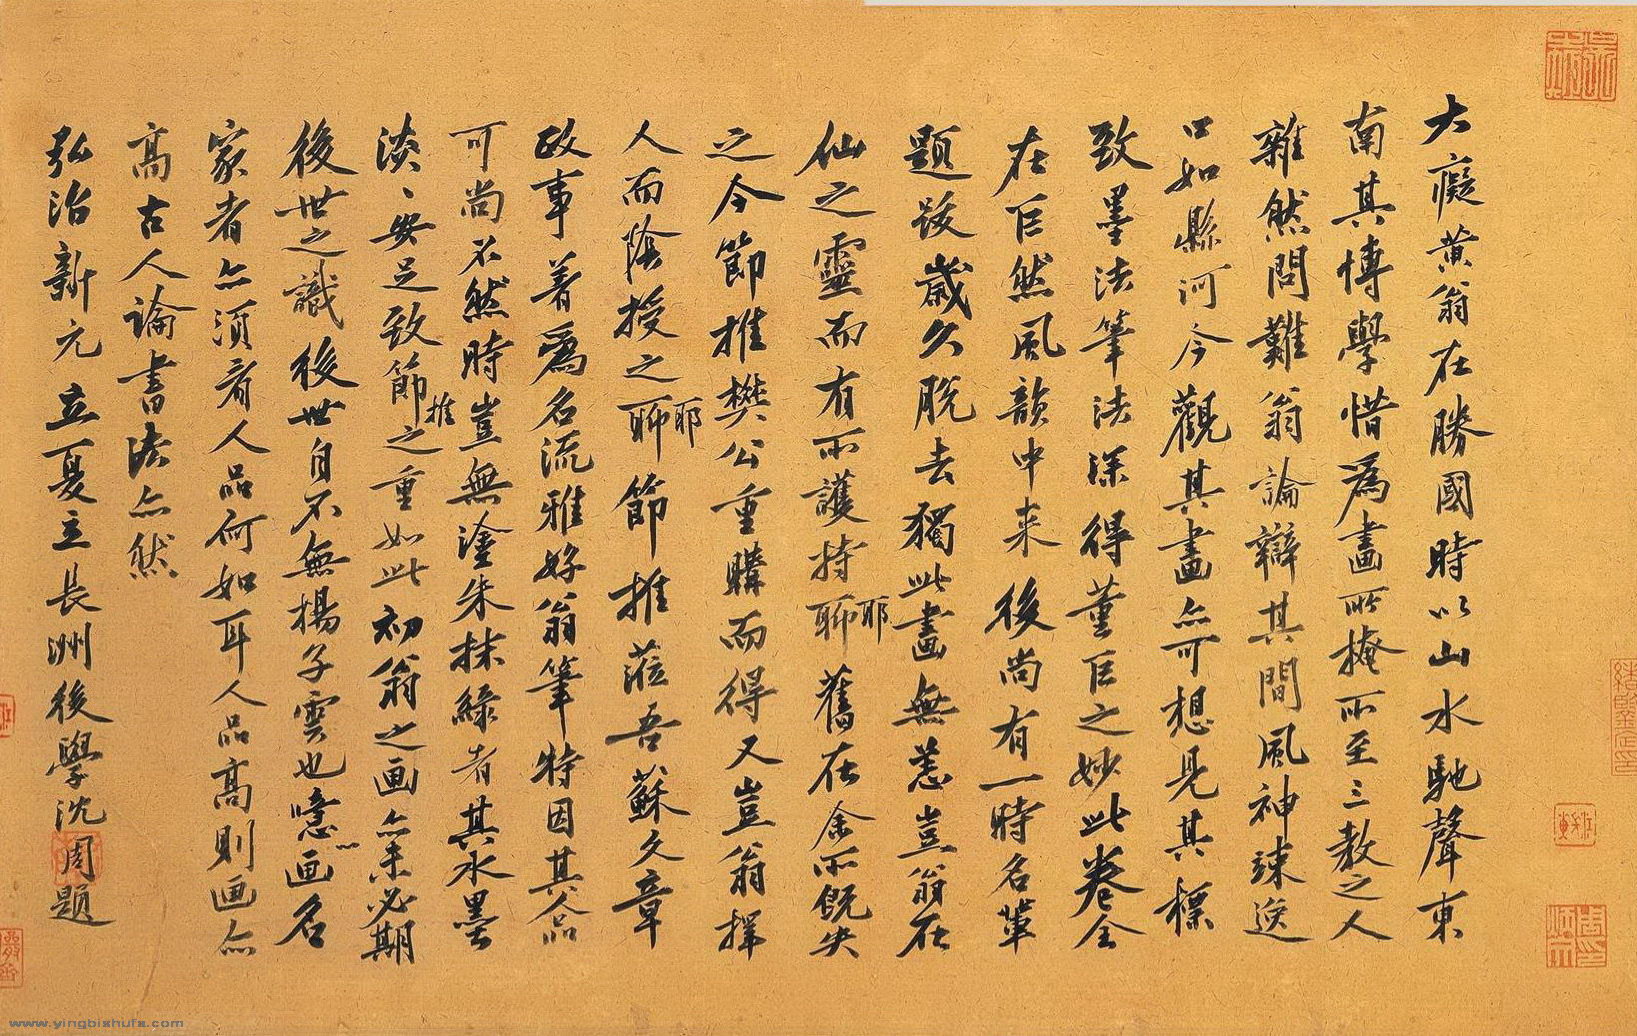 大癡黄翁在勝國時以山水馳聲東
南其博學惜為畫所掩所至三教之人
雜然問難翁論辯其間風神竦逸
口如縣河今觀其畫亦可想見其標
致墨法筆法深得董巨之妙此卷全
在巨然風韻中来後尚有一時名軰
題跋歲久脱去獨此畫無恙豈翁在
仙之靈而有所護持耶舊在余所既失
之今節推樊公重購而得又豈翁擇
人而陰授之耶節推蒞吾蘇文章
政事著為名流雅好翁筆特因其人品
可尚不然時豈無塗朱抹綠者其水墨
淡淡安足致節推之重如此初翁之画亦未必期
後世之識後世自不無揚子雲也噫画名
家者亦須看人品何如耳人品高則画亦
高古人論書法亦然
弘治新元立夏立長洲後學沈周題
www.yingbishufa.com